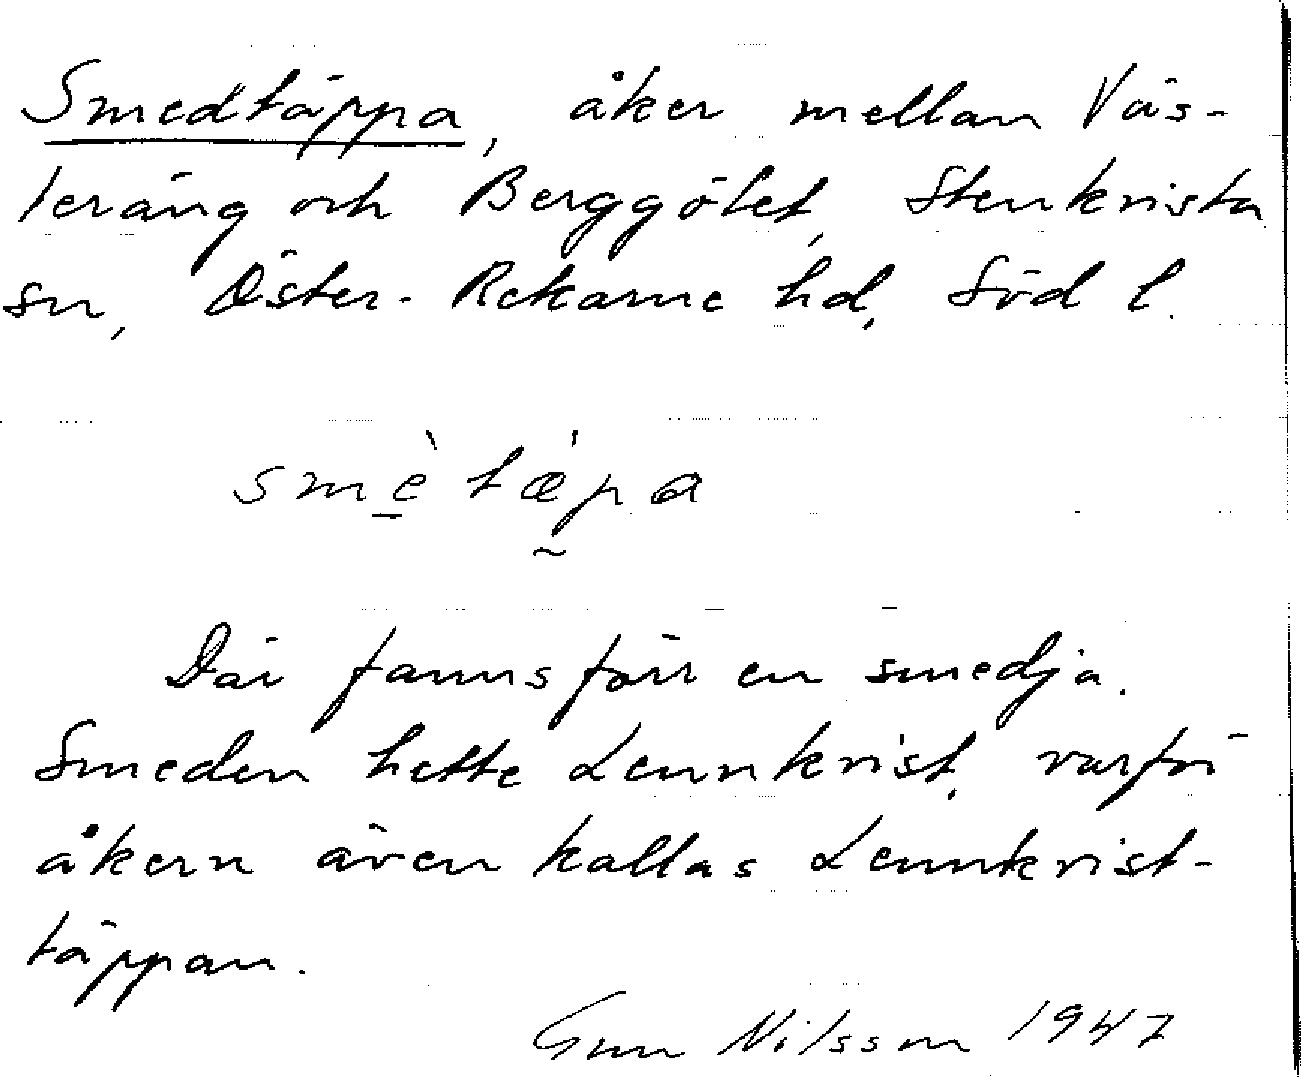 Smedtäppa, åker mellan Väs-
teräng och Berggölet, Stenkvista
sn, Öster-Rekarne hd, Söd l.
smè tæ̀pa
Där fanns förr en smedja.
Smeden hette Lennkvist, varför
åkern även kallas Lennkvist-
täppan.
Gun Nilsson 1947